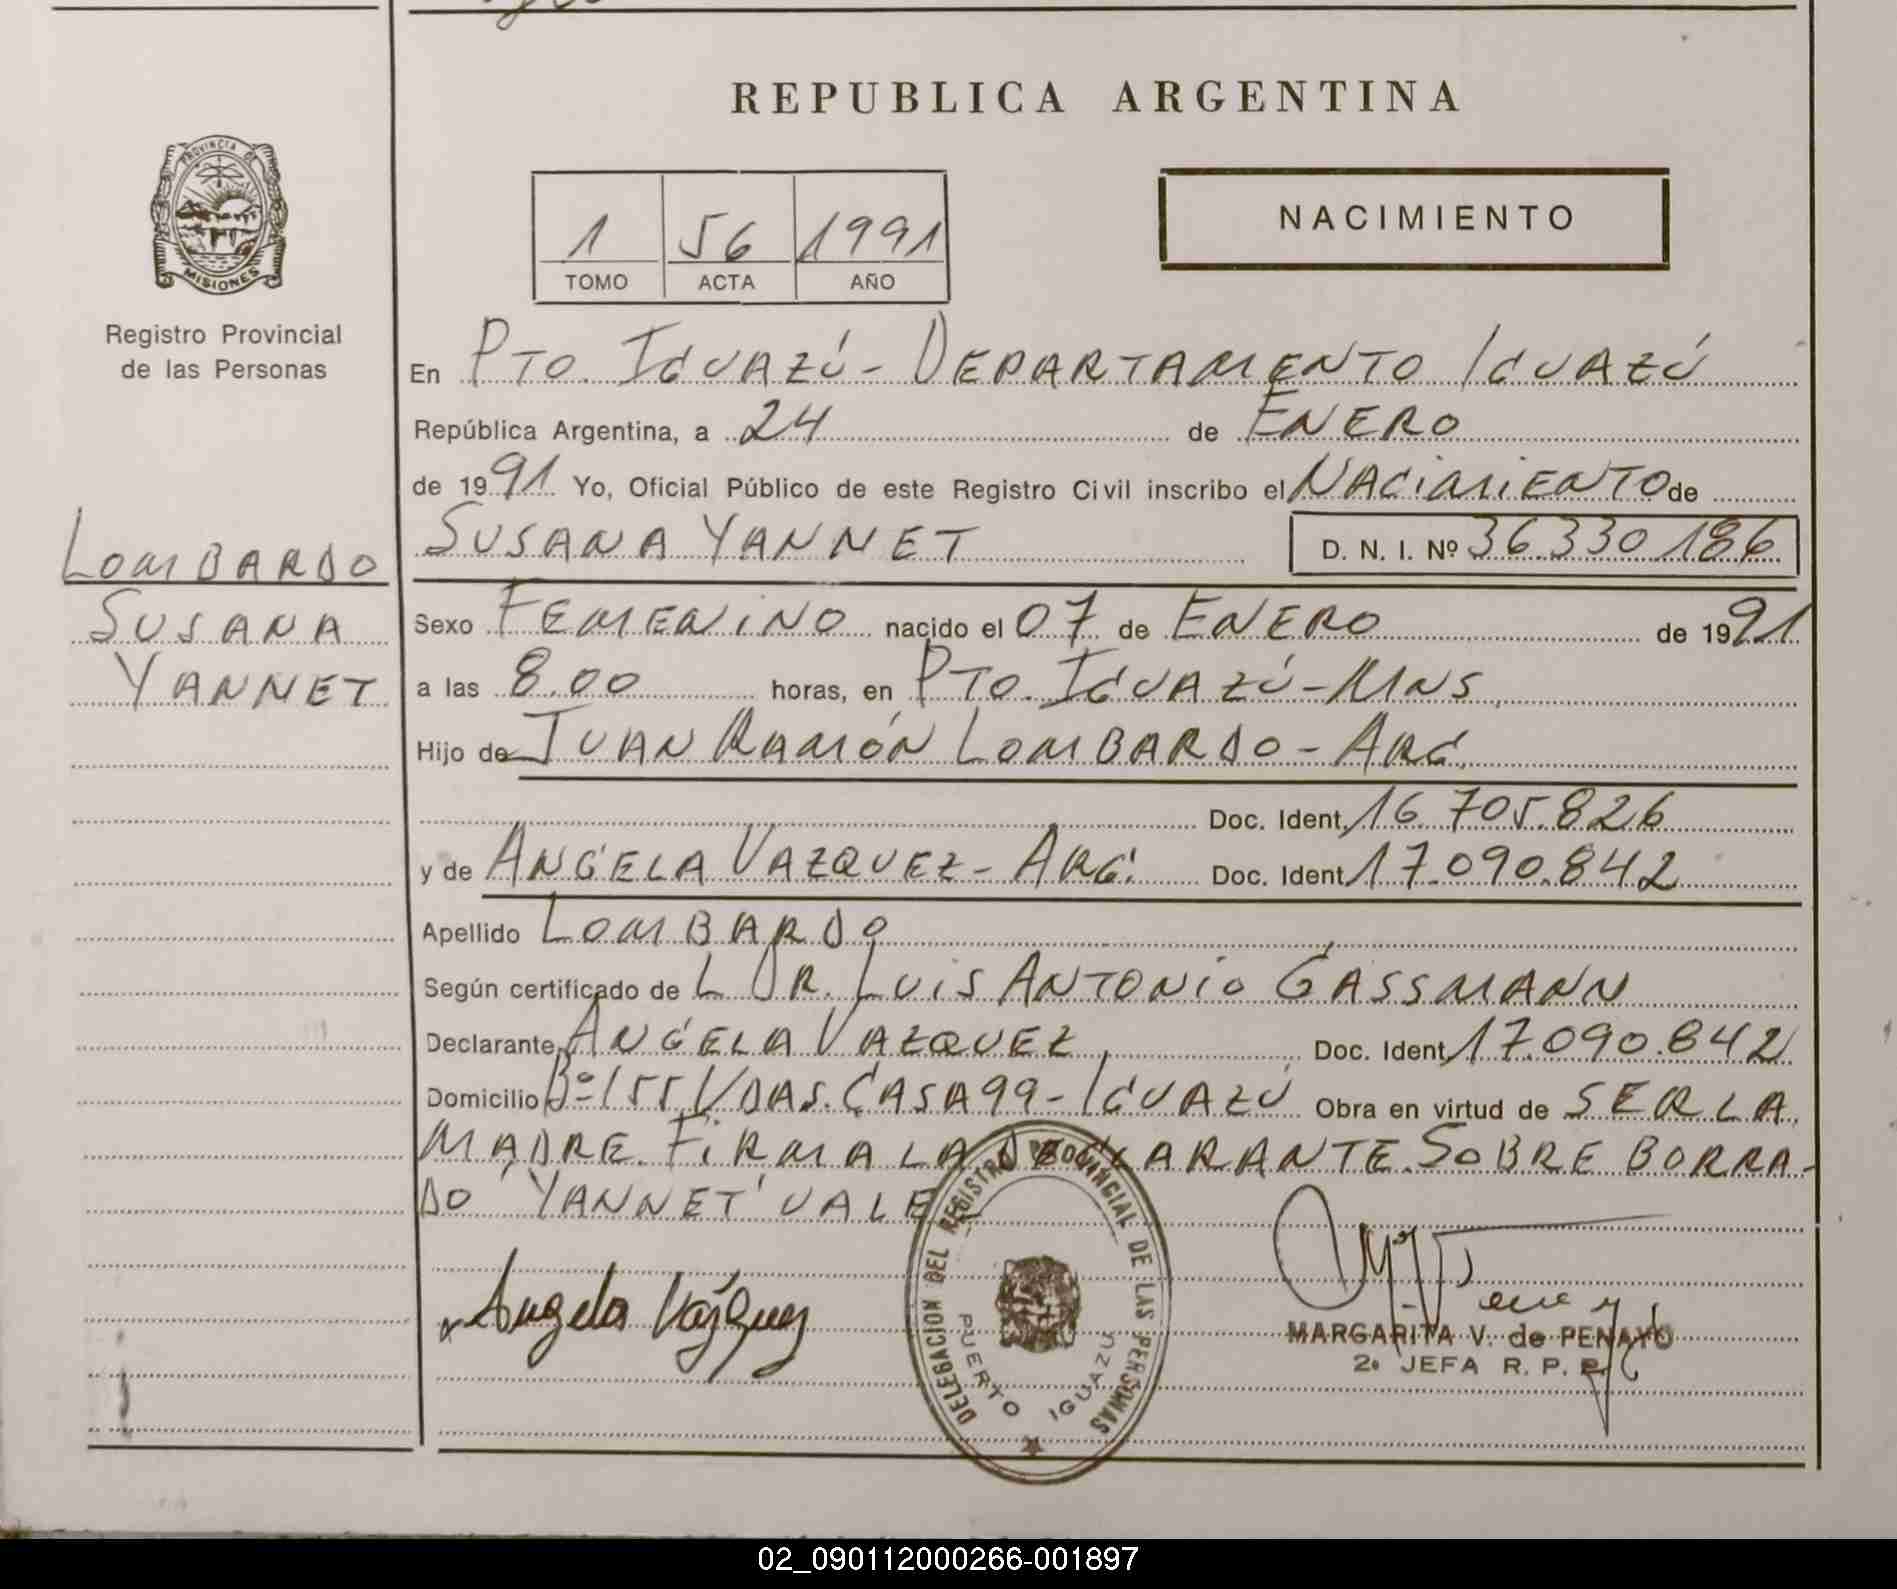 REPUBLICA ARGENTINA
PROVINCIA DE MISIONES
Registro Provincial
de las Personas
1 56 1991
TOMO ACTA AÑO
NACIMIENTO
En PTO. IGUAZÚ - DEPARTAMENTO IGUAZÚ
República Argentina, a 24 de ENERO
de 1991 Yo, Oficial Público de este Registro Civil inscribo el NACIMIENTO de
SUSANA YANNET D. N. I. Nº 36330186
LOMBARDO
SUSANA
YANNET
Sexo FEMENINO nacido el 07 de ENERO de 1991
a las 8.00 horas, en PTO. IGUAZÚ - MNS
Hijo de JUAN RAMÓN LOMBARDO - ARG.
Doc. Ident. 16.705.826
y de ANGELA VAZQUEZ - ARG. Doc. Ident. 17.090.842
Apellido LOMBARDO
Según certificado de L DR. LUIS ANTONIO GASSMANN
Declarante ANGELA VAZQUEZ, Doc. Ident. 17.090.842
Domicilio Bº 155 VDAS. CASA 99 - IGUAZÚ Obra en virtud de SER LA
MADRE. FIRMA LA DECLARANTE. SOBRE BORRA-
DO "YANNET" VALE
Angela Vázquez
DELEGACION DEL REGISTRO PROVINCIAL DE LAS PERSONAS
PUERTO IGUAZU
MARGARITA V. de PENAYO
2º JEFA R. P. P.
02_090112000266-001897